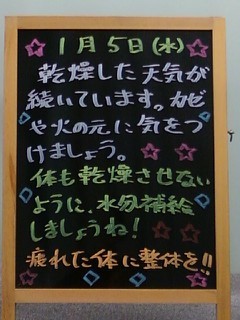 1月5日(水)
乾燥した天気が
続いています。カゼ
や火の元に気をつ
けましょう。
体も乾燥させない
ように、水分補給
しましょうね!
疲れた体に整体を!!